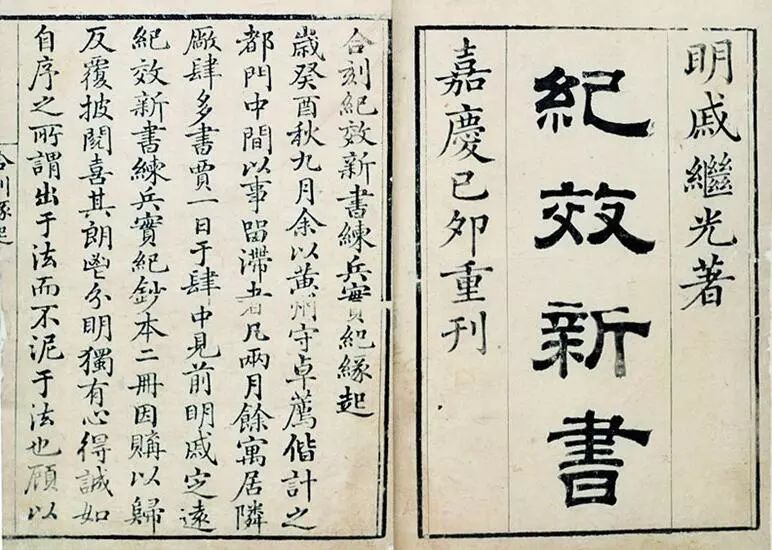 明戚繼光著
紀效新書
嘉慶己夘重刊
合刻紀效新書練兵實紀緣起
歲癸酉秋九月余以黃州守卓薦偕計之
都門中間以事畱滯者凡兩月餘寓居隣
廠肆多書賈一日于肆中見前明戚定遠
紀效新書練兵實紀鈔本二冊因購以歸
反覆披閱喜其朗鬯分明獨有心得誠如
自序之所謂出于法而不泥于法也顧以